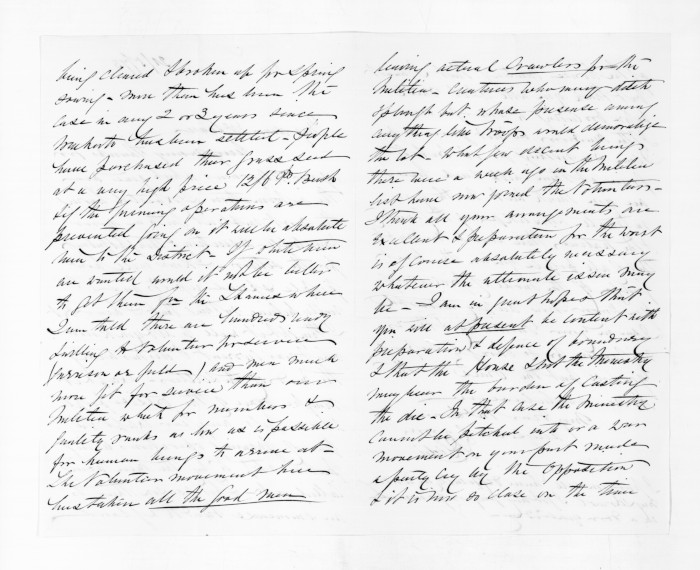 being cleared & broken up for Spring
sowing - more than has been the
case in any 2 or 3 years since
has been settled - People
have purchased their grass seed
at a very high price 12/6 Pr. Bush
& if the operations are
prevented going on it will be absolute
ruin to the District - If able men
are wanted would it not be better
to get them fm the Thames where
I am told there are hundreds ready
& willing to Volunteer for service
(Garrison or field) and men much
more fit for service than our
Militia which for numbers &
quality ranks as low as is possible
for human beings to arrive at -
The Volunteer movement here
has taken all the good men
leaving actual Crawlers for the
Militia - Creatures who may ditch
& plough but whose presence among
anything like troops would demoralize
the lot - What few decent beings
there were a week ago in the Militia
list have now joined the Volunteers -
I think all your arrangements are
excellent & preparation for the worst
is of course absolutely necessary
whatever the ultimate issue may
be - I am in great hopes that
you will at present be content with
preparation & defence of boundary
& that the House & not the Ministry
may bear the burden of Casting
the die - In that case the Ministry
cannot be pitched into or a war
movement on your part made
a party cry by the Opposition
& it is now so close on the time